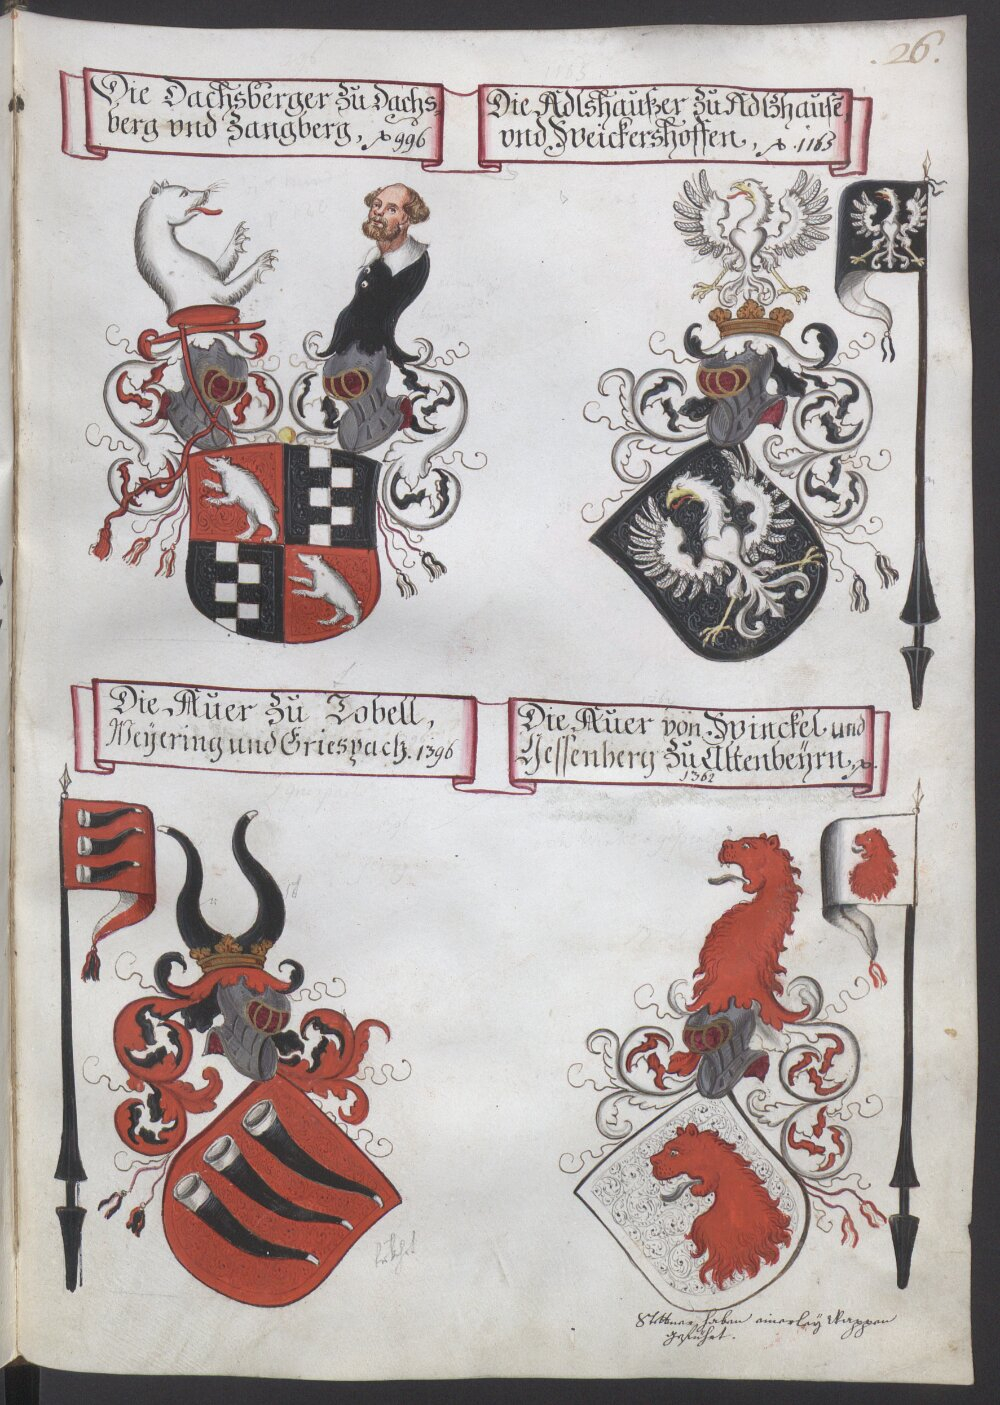 .26.
Die Dachsberger zu Dachs-
berg vnd Zangberg, A 996
Die Adlshauser zu Adlshause
vnd Weickershoffen, A. 1163
Die Auer zu Tobell,
Weyering und Griespach. 1396
Die Auer von Winckel und
Gessenberg zu Altenbeyrn, A.
1362
haben einerley Wappen
geführt.